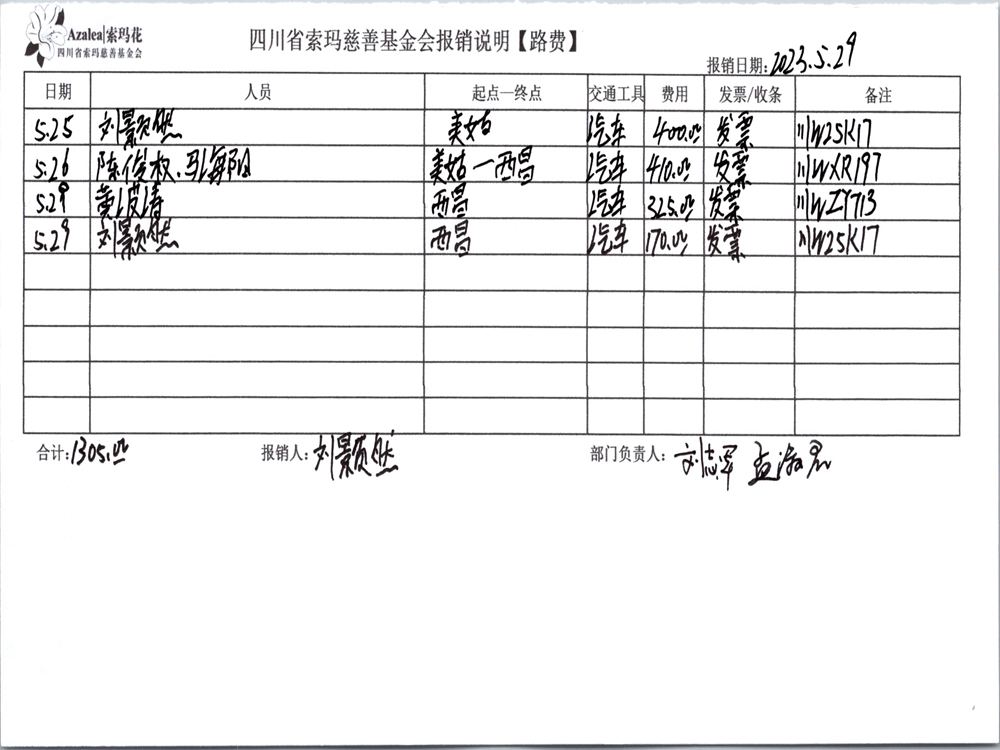 Azalea|索玛花
四川省索玛慈善基金会
四川省索玛慈善基金会报销说明【路费】
报销日期:2023.5.29
日期 人员 起点—终点 交通工具 费用 发票/收条 备注
5.25 刘景颁然 美姑 汽车 400.00 发票 川W25K17
5.26 陈俊权.马海阳 美姑—西昌 汽车 410.00 发票 川WXR197
5.29 黄波涛 西昌 汽车 325.00 发票 川WZY713
5.29 刘景颁然 西昌 汽车 170.00 发票 川W25K17
合计:1305.00 报销人:刘颢然 部门负责人:刘志军